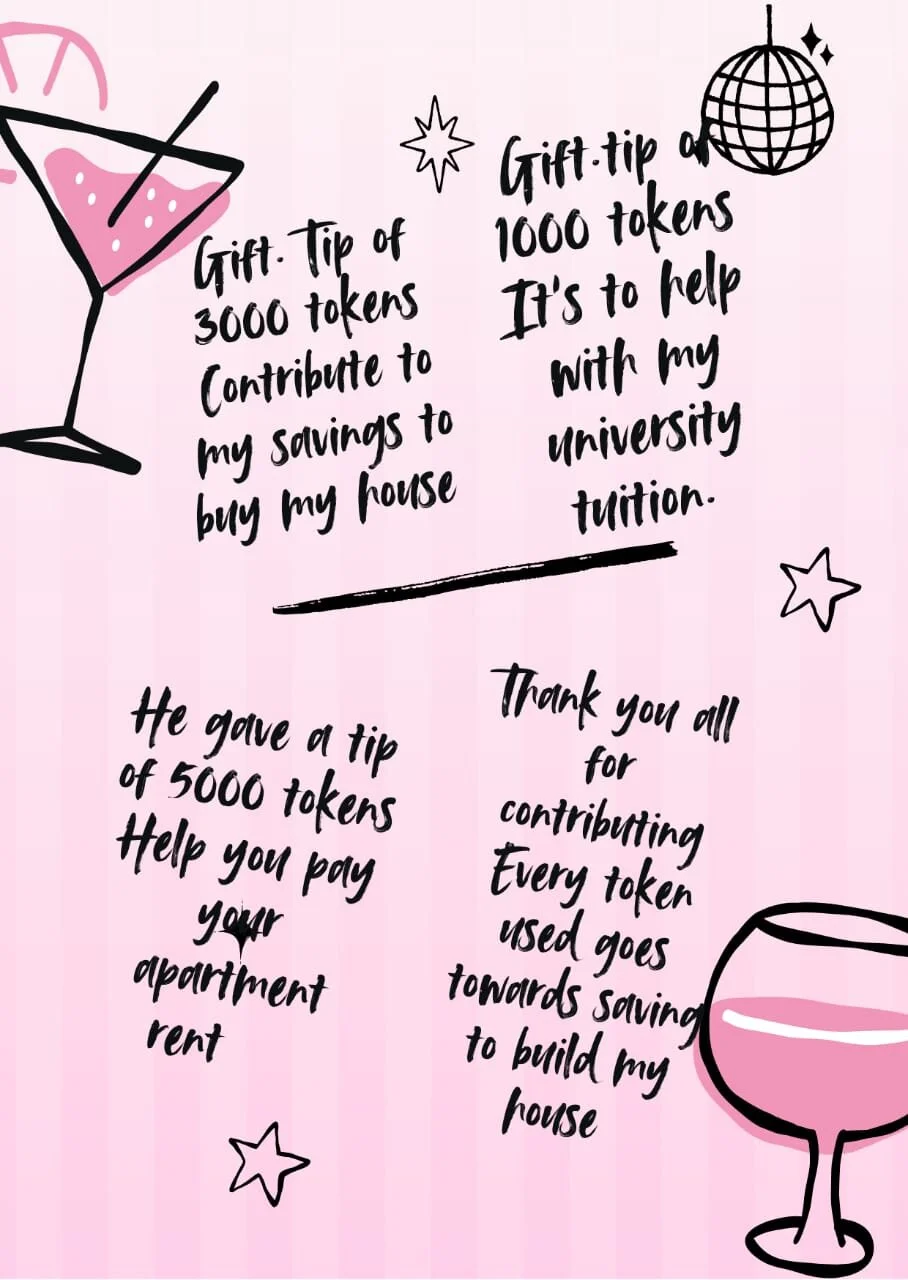 Gift. Tip of
3000 tokens
Contribute to
my savings to
buy my house
Gift.tip of
1000 tokens
It's to help
with my
university
tuition.
He gave a tip
of 5000 tokens
Help you pay
your
apartment
rent
Thank you all
for
contributing
Every token
used goes
towards saving
to build my
house